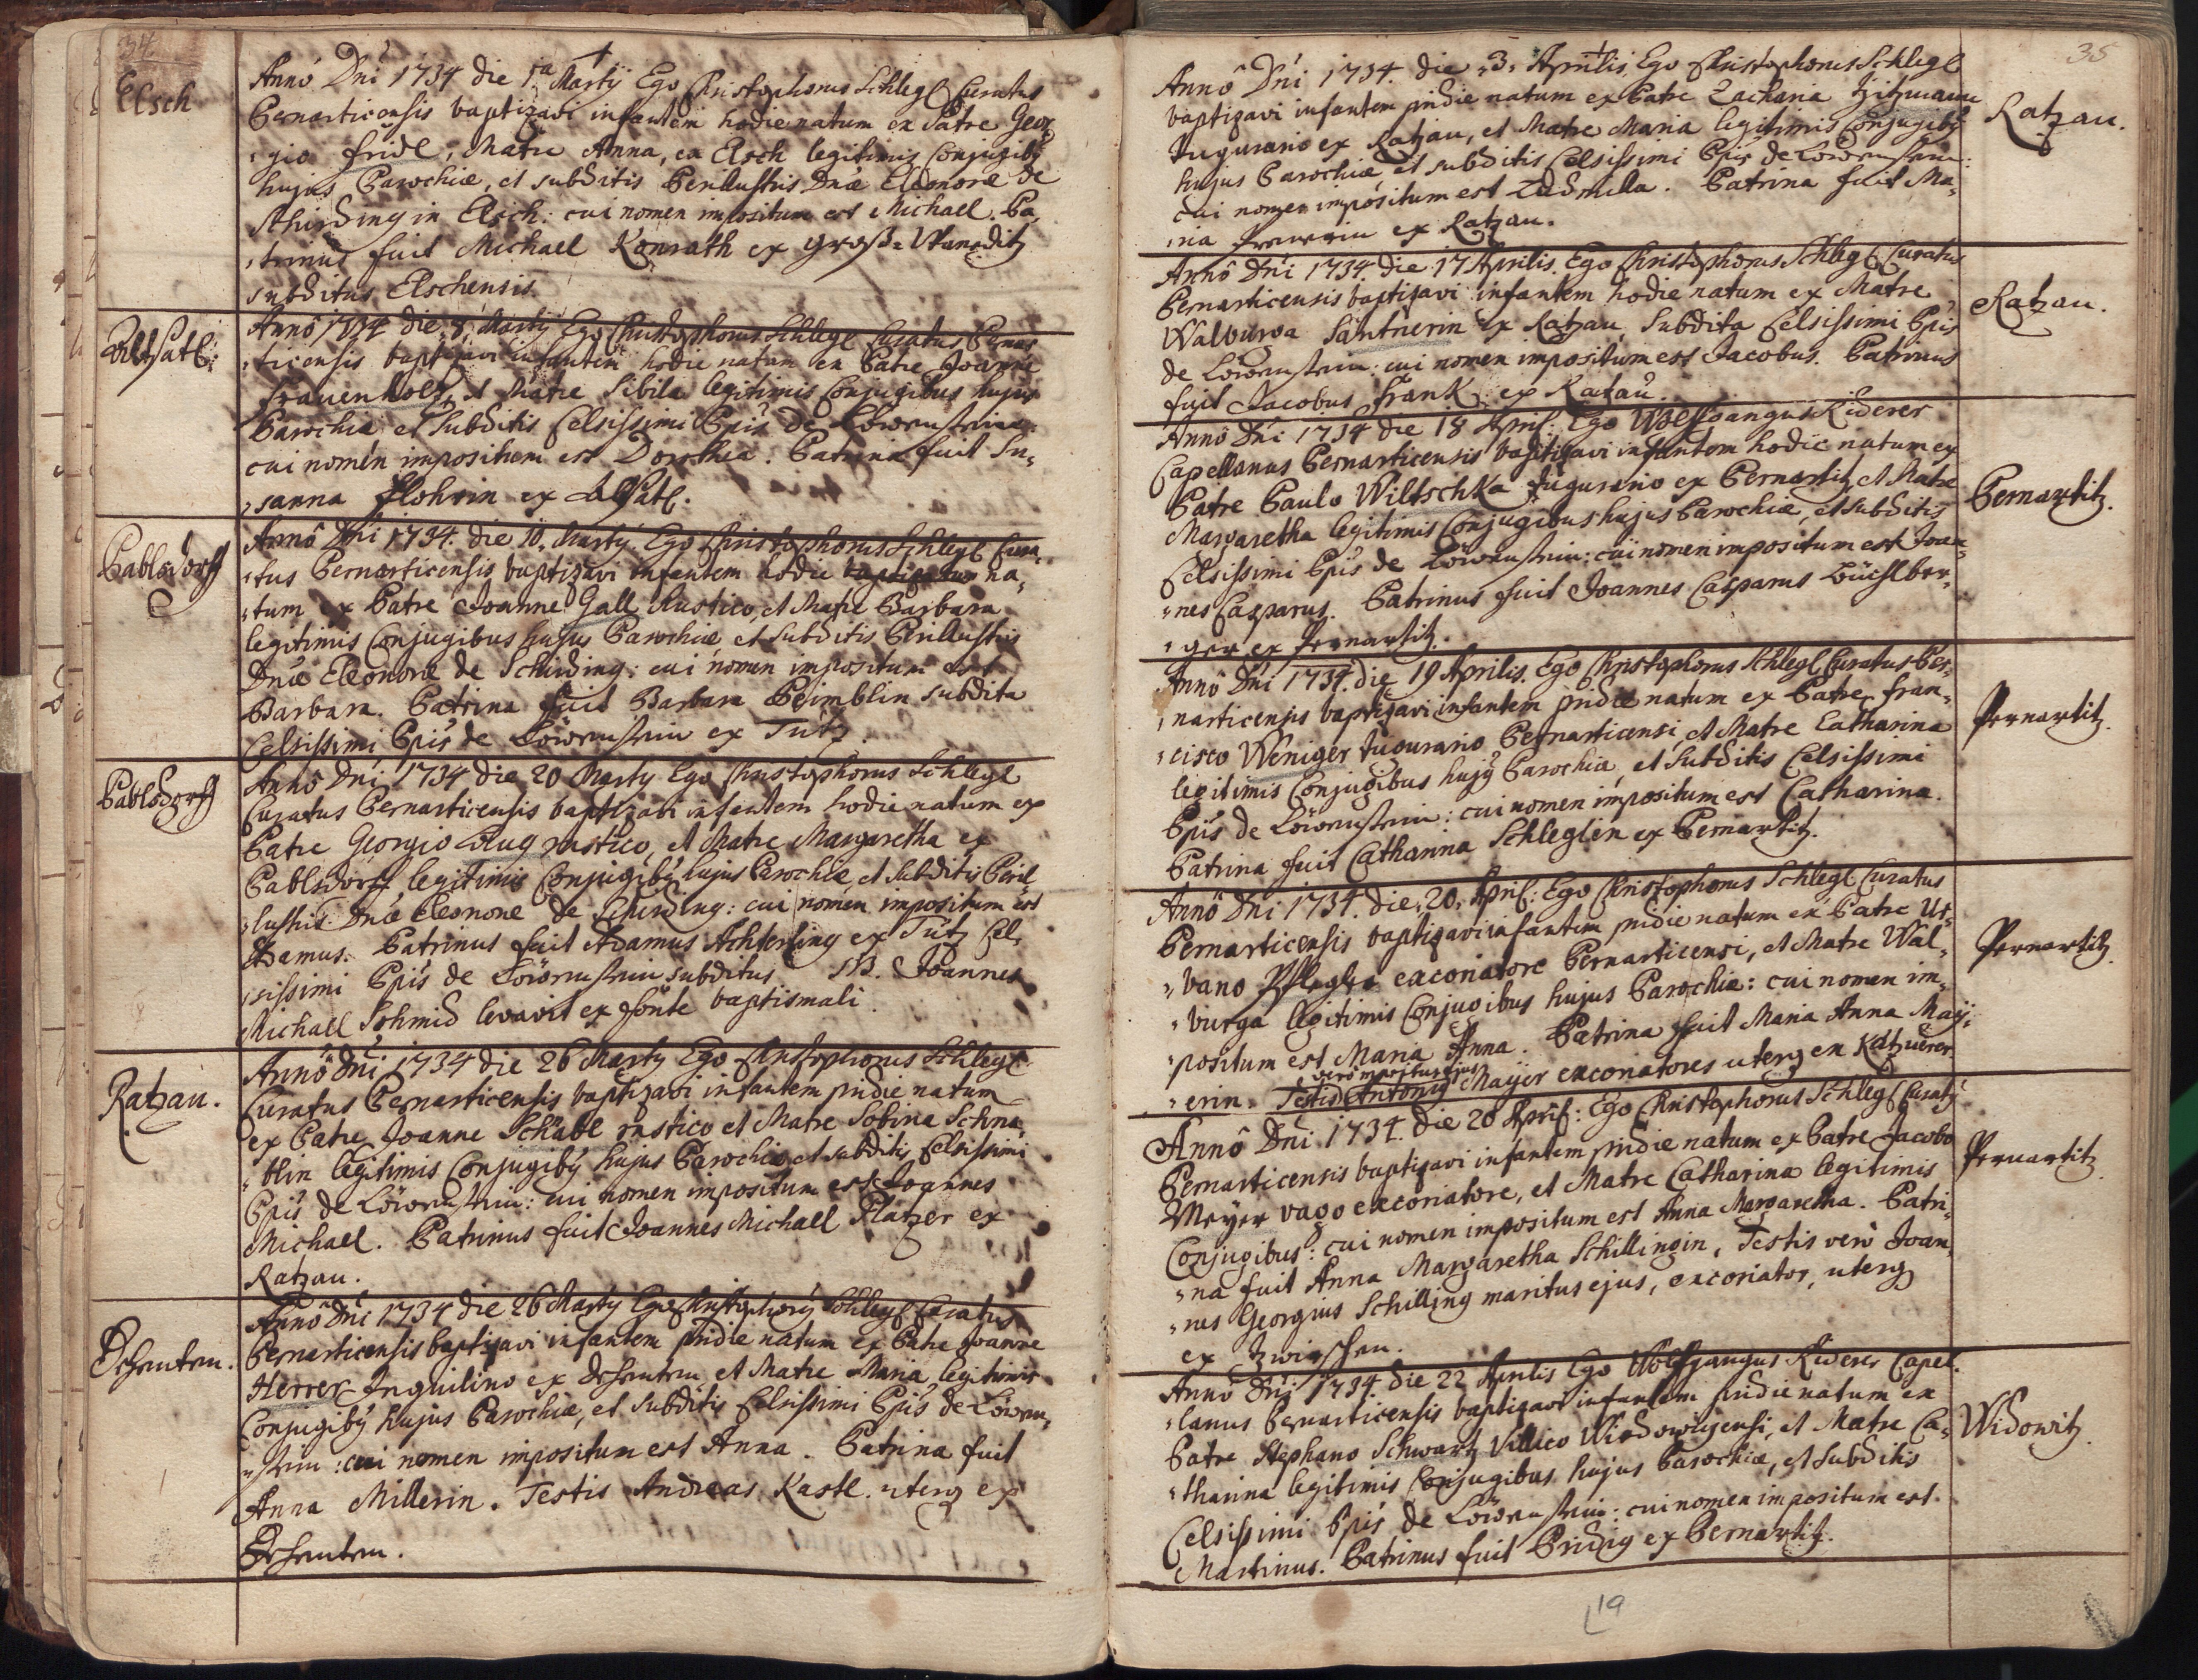 34
Elsch
Anno Dni 1734 die 1ma Martÿ Ego Christophorus Schlegl Curatus
Bernarticensis baptizavi infantem hodie natum ex Patre Geor
gio fridl, Matre Anna, ex Elsch legitimis Conjugibꝫ
hujus Parochiæ, et subditis Perillustris Dnæ Eleonoræ de
Schirding in Elsch: cui nomen impositum est Michael. Pa,
,trinus fuit Michael Konrath ex Groß-
subditus Elschensis.
AltSatl:
Anno 1734 die 8 Martÿ Ego Christophorus Schlegl Curatus Bernar
,ticensis baptizavi infantem hodie natam ex Patre Joanne
Frauenholtz, et Matre Sibila legitimis Conjugibus hujus
Parochiæ et subditis Celsissimi Ppis de Löwenstein:
cui nomen impositum est Dorothea. Patrina fuit Su,
,sanna flohrin ex AltSatl.
Pablsdorff
Anno Dni 1734. die 10. Martÿ. Ego Christophorus Schlegl Cura,
,tus Bernarticensis baptizavi infantem hodie baptizatum na,
,tum ex Patre Joanne Gall Rustico, et Matre Barbara
legitimis Conjugibus hujus Parochiæ, et subditis Perillustris
Dnæ Eleonoræ de Schirding: cui nomen impositum est
Barbara. Patrina fuit Barbara Beimblin subdita
Celsissimi Ppis de Löwenstein ex Tütz.
Pablsdorff
Anno Dni 1734 die 20 Martÿ Ego Christophorus Schlegl
Curatus Bernarticensis baptizavi infantem hodie natum ex
Patre Georgio rustico, et Matre Margaretha ex
Pablsdorff legitimis Conjugibꝫ hujus Parochiæ, et subditis Peril,
,lustris Dnæ Eleonoræ de Schirding: cui nomen impositum est
Adamus. Patrinus fuit Adamus Achterling ex Tütz Cel,
,sissimi Ppis de Löwenstein subditus NB. Joannes
Michael Schmid levavit ex fonte baptismali.
Ratzau.
Anno Dni 1734 die 26 Martÿ Ego Christophorus Schlegl
Curatus Bernarticensis baptizavi infantem pridie natum
ex Patre Joanne Schäbl rustico et Matre Sobina Schna
,blin legitimis Conjugibꝫ hujus Parochiæ, et subditis Celsissimi
Ppis de Löwenstein: cui nomen impositum est Joannes
Michael. Patrinus fuit Joannes Michael Platzer ex
Ratzau.
Anno Dni 1734 die 26 Martÿ Ego Christophorꝫ Schlegl Curatus
Bernarticensis baptizavi infantem pridie natum ex Patre Joanne
Herrer Inquilino ex et Matre Maria legitimis
Conjugibꝫ hujus Parochiæ, et subditis Celsissimi Ppis de Löwen,
,stein: cui nomen impositum est Anna. Patrina fuit
Anna Millerin. Testis Andreas Kastl. uterq ex
35
Anno Dni 1734. die 3. Aprilis Ego Christophorus Schlegl
baptizavi infantem pridie natum ex Patre Zacharia Zitzmann
Tugurario ex Ratzau, et Matre Maria legitimis Conjugibꝫ
hujus Parochiæ, et subditis Celsissimi Ppis de Löwenstein:
cui nomen impositum est Ludmilla. Patrina fuit Ma,
,ria ex Ratzau.
Ratzau.
Anno Dni 1734 die 17 Aprilis. Ego Christophorus Schlegl Curatus
Bernarticensis baptizavi infantem hodie natum ex Matre
Walburga Säntnerin ex Ratzau Subdita Celsissimi Ppis
de Löwenstein: cui nomen impositum est Jacobus. Patrinus
fuit Jacobus frank ex Ratzau.
Ratzau.
Anno Dni 1734 die 18 April: Ego Wolffgangus Riderer
Capellanus Bernarticensis baptizavi infantem hodie natum ex
Patre Paulo Wiltschka Tugurario ex Bernartitz et Matre
Margaretha legitimis Conjugibus hujus Parochiæ, et subditis
Celsissimi Ppis de Löwenstein: cui nomen impositum est Joan,
,nes Casparus. Patrinus fuit Joannes Casparus Büchlber,
,ger ex Pernartitz.
Bernartitz.
Anno Dni 1734. die 19 Aprilis. Ego Christophorus Schlegl Curatus Ber,
,narticensis baptizavi infantem pridie natum ex Patre fran,
,cisco Weniger Tugurario Bernarticensi, et Matre Catharina
legitimis Conjugibus hujꝫ Parochiæ, et Subditis Celsissimi
Ppis de Löwenstein: cui nomen impositum est Catharina.
Patrina fuit Catharina Schleglin ex Bernartitz.
Pernartitz.
Anno Dni 1734. die 20. April: Ego Christophorus Schlegl Curatus
Bernarticensis baptizavi infantem pridie natum ex Patre Ur,
,bano excoriatore Bernarticensi, et Matre Wal,
,burga legitimis Conjugibus hujus Parochiæ: cui nomen im,
,positum est Maria Anna. Patrina fuit Maria Anna Maÿ,
,erin. Testis Antonius Maÿer excoriatores uterq ex
vero maritus ejus
Pernartitz.
Anno Dni 1734. die 20 April: Ego Christophorus Schlegl Curatꝫ
Bernarticensis baptizavi infantem pridie natum ex Patre Jacobo
Meyer vago excoriatore, et Matre Catharina legitimis
Conjugibus: cui nomen impositum est Anna Margaretha. Patri,
,na fuit Anna Margaretha Schillingin, Testis vero Joan,
,nes Georgius Schilling maritus ejus, excoriator, uterq
ex
Pernartitz.
Anno Dni 1734. die 22 Aprilis Ego Wolfgangus Riderer Capel,
,lanus Bernarticensis baptizavi infantem pridie natum ex
Patre Stephano Schwartz Villico Widowizensi, et Matre Ca,
,tharina legitimis Conjugibus hujus Parochiæ, et subditis
Celsissimi Ppis de Löwenstein: cui nomen impositum est
Martinus. Patrinus fuit Pridig ex Bernartitz.
Widowitz.
19